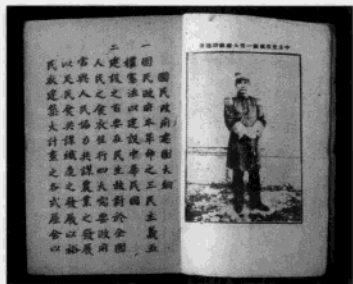 國民政府建國大綱
一國民政府本革命之三民主義五
權憲法以建設中華民國
二建設之首要在民生故對於全國
人民之食衣住行四大需要政府
當與人民協力共謀農業之發展
以足民食共謀織造之發展以裕
民衣建築大計畫之各式屋舍以